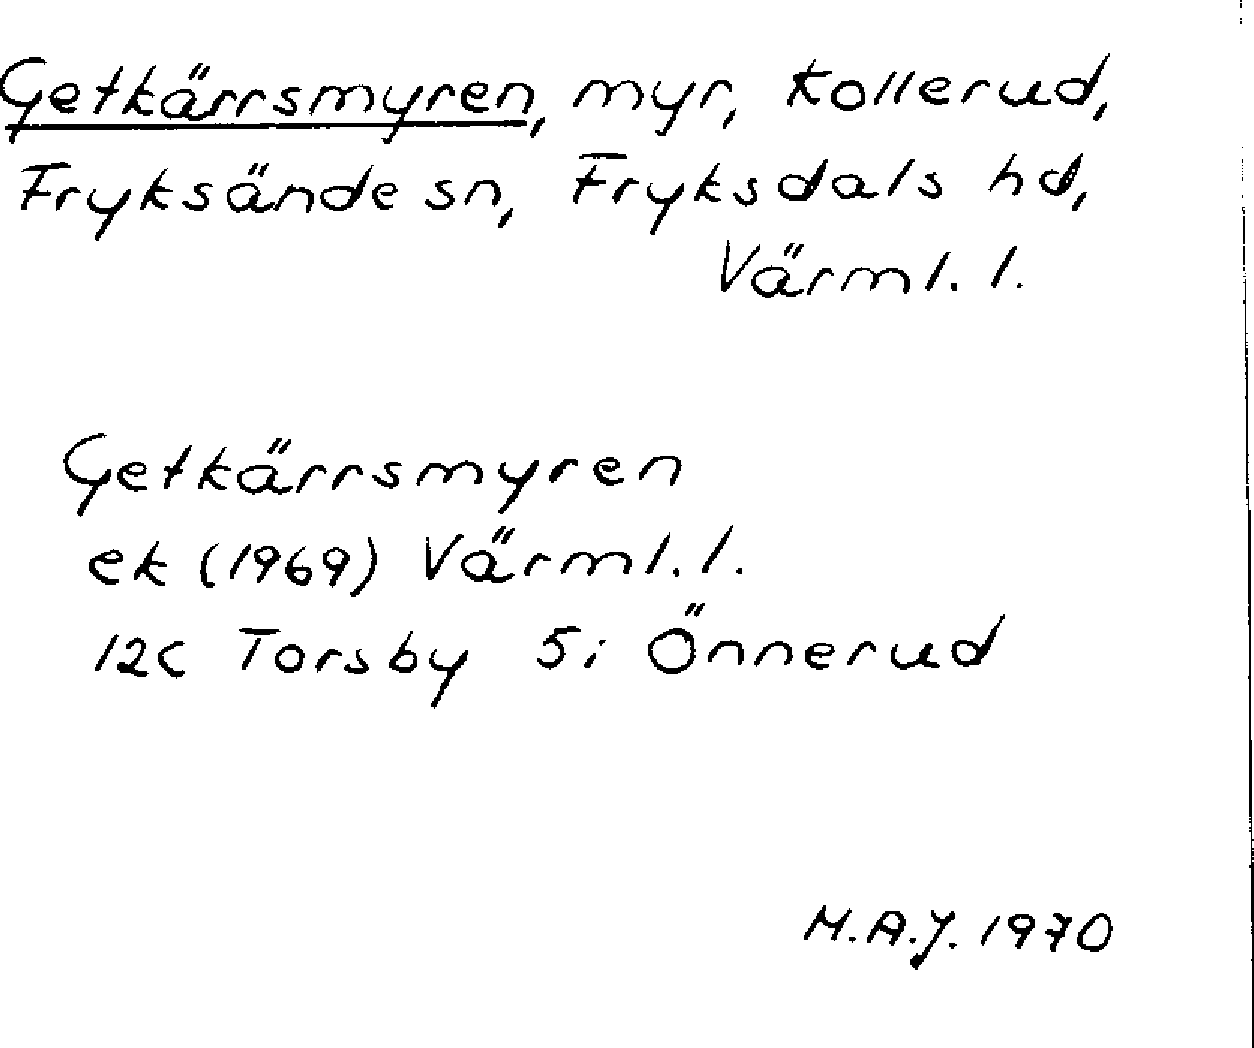 Getkärrsmyren, myr, Kollerud,
Fryksände sn, Fryksdals hd,
Värml. l.
Getkärrsmyren
ek (1969) Värml. l.
12C Torsby 5i Önnerud
M.A.J. 1970